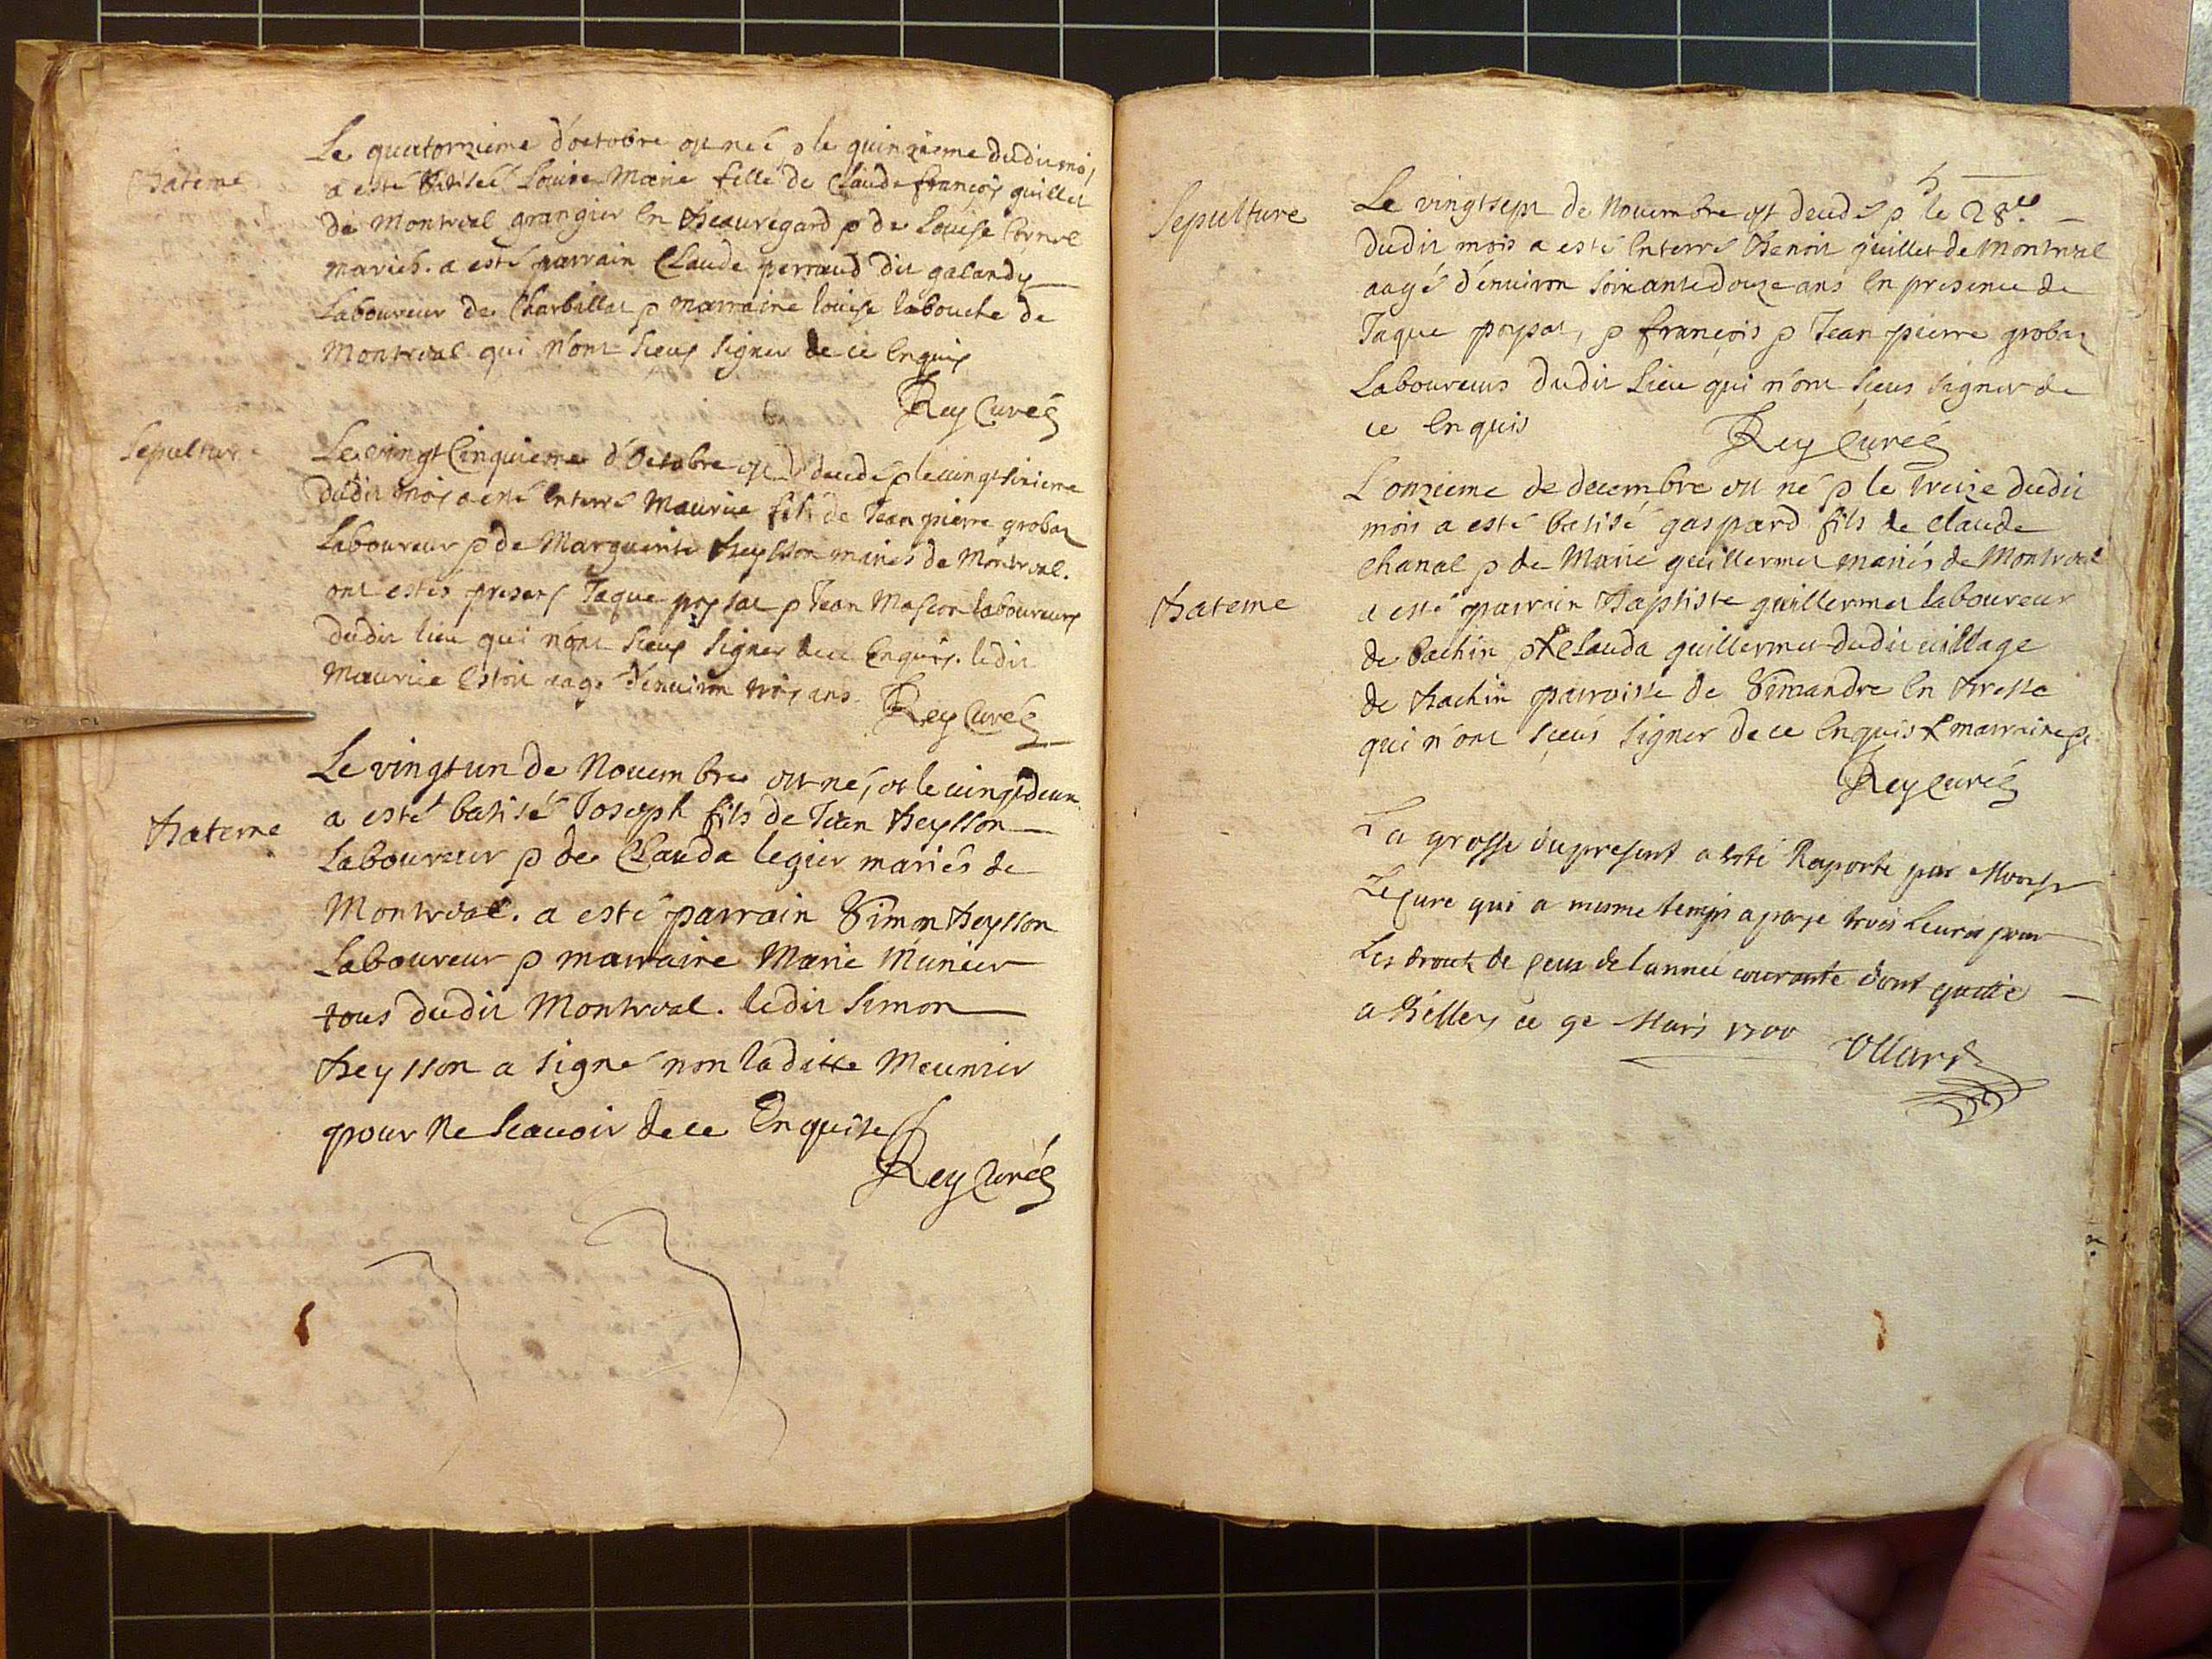 Bateme
Le quatorzieme d'octobre est neé & le quinzieme dudit mois
a esté batiseé Louise Marie fille de Claude françois guillet
de Montreal grangier en Beauregard & de Louise Cornel
mariés. a esté parrain Claude perraud dit galandy
Laboureur de Charbillat & marraine louise labouche de
Montreal qui n'ont sceus signer de ce enquis
Rey Cureé
Sepulture
Le vingt Cinquieme d'Octobre est decedé & le vingt sixieme
dudit mois a esté enterré Maurice fils de Jean pierre grobaz
Laboureur & de Marguerite Beysson mariés de Montreal.
ont estés presens Jaque poysat & Jean Mascon laboureurs
dudit lieu qui n'ont sceus signer de ce enquis. ledit
Maurice estoit aagé d'environ trois ans. Rey Cureé
Bateme
Le vingt un de Novembre est né, et le vingt deux
a esté batisé Joseph fils de Jean Beysson
Laboureur & de Clauda legier mariés de
Montreal. a esté parrain Simon Beysson
Laboureur & marraine Marie Munier
tous dudit Montreal. ledit Simon
Beysson a signé non laditte Meunier
pour ne scavoir de ce Enquise
Rey Cureé
5
Sepulture
Le vingt sept de Novembre est decedé & le 28e.
dudit mois a esté enterré Benoit guillet de Montreal
aagé d'environ soixante douze ans en presence de
Jaque poysat, & françois & Jean pierre grobaz
Laboureurs dudit Lieu qui n'ont sceus signer de
ce enquis Rey Cureé
Bateme
L'onzieme de decembre est né & le treize dudit
mois a esté batisé gaspard fils de claude
chanal & de Marie guillermet mariés de Montreal
a esté parrain Baptiste guillermet laboureur
de bachin & x Clauda guillermet dudit village
de Bachin parroisse de Simandre en Bresse
qui n'ont sceus signer de ce enquis x marraine
Rey Cureé
La grosse du present a esté Raporté par Monsr
Le Cure qui a mesme temps a paye trois Livres pour
Les droits de ceux de l'année courante dont quitte
a Belley ce 9e Mars 1700 Ollard